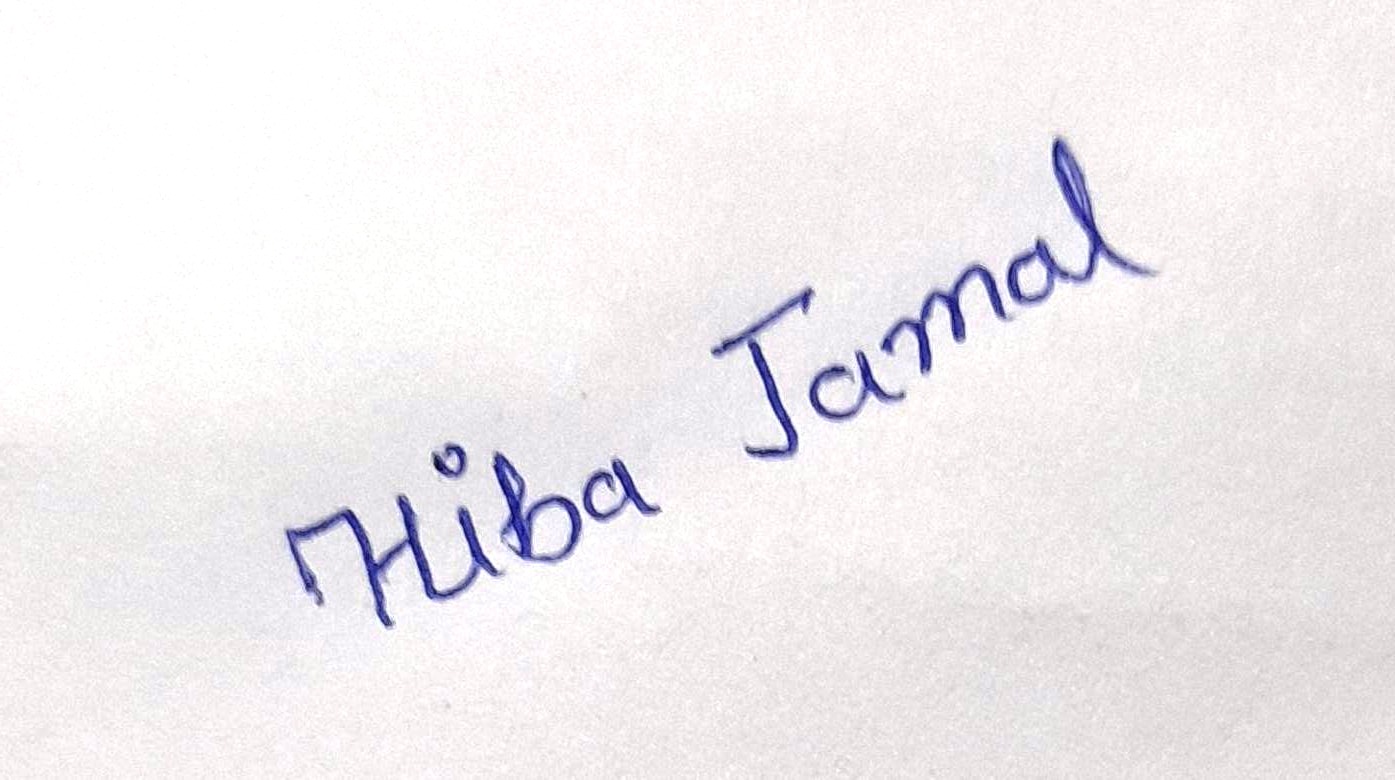 Hiba Jamal